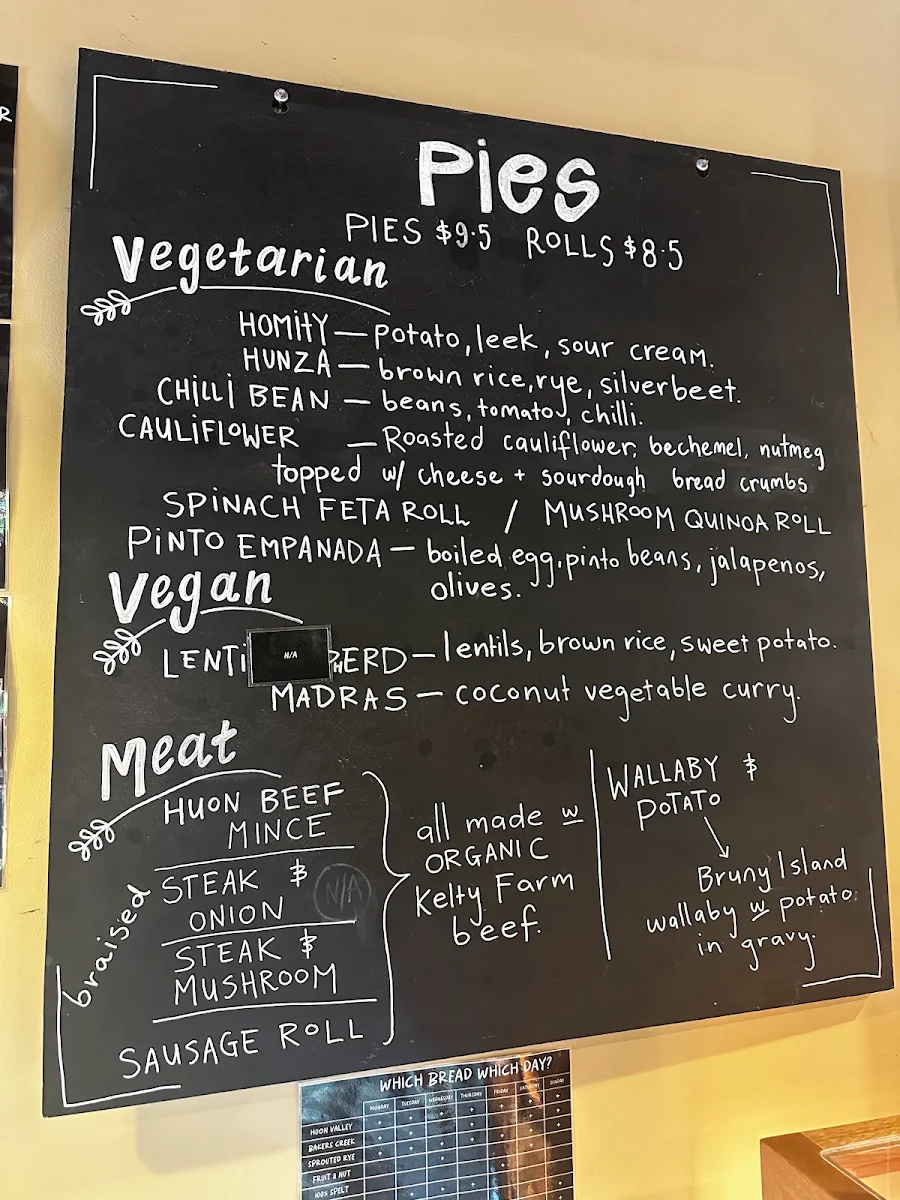 Pies
PIES $9.5 ROLLS $8.5
Vegetarian
HOMITY — potato, leek, sour cream.
HUNZA — brown rice, rye, silverbeet.
CHILLI BEAN — beans, tomato, chilli.
CAULIFLOWER — Roasted cauliflower, bechemel, nutmeg
topped w/ cheese + sourdough bread crumbs
SPINACH FETA ROLL / MUSHROOM QUINOA ROLL
PINTO EMPANADA — boiled egg, pinto beans, jalapenos,
olives.
Vegan
LENTI N/A HERD — lentils, brown rice, sweet potato.
MADRAS — coconut vegetable curry.
Meat
HUON BEEF
MINCE
braised
STEAK &
ONION
N/A
STEAK &
MUSHROOM
SAUSAGE ROLL
all made w
ORGANIC
Kelty Farm
beef.
WALLABY &
POTATO
Bruny Island
wallaby w potato
in gravy.
WHICH BREAD WHICH DAY?
MONDAY TUESDAY WEDNESDAY THURSDAY FRIDAY SATURDAY SUNDAY
HUON VALLEY
BAKERS CREEK
SPROUTED RYE
FRUIT & NUT
100% SPELT